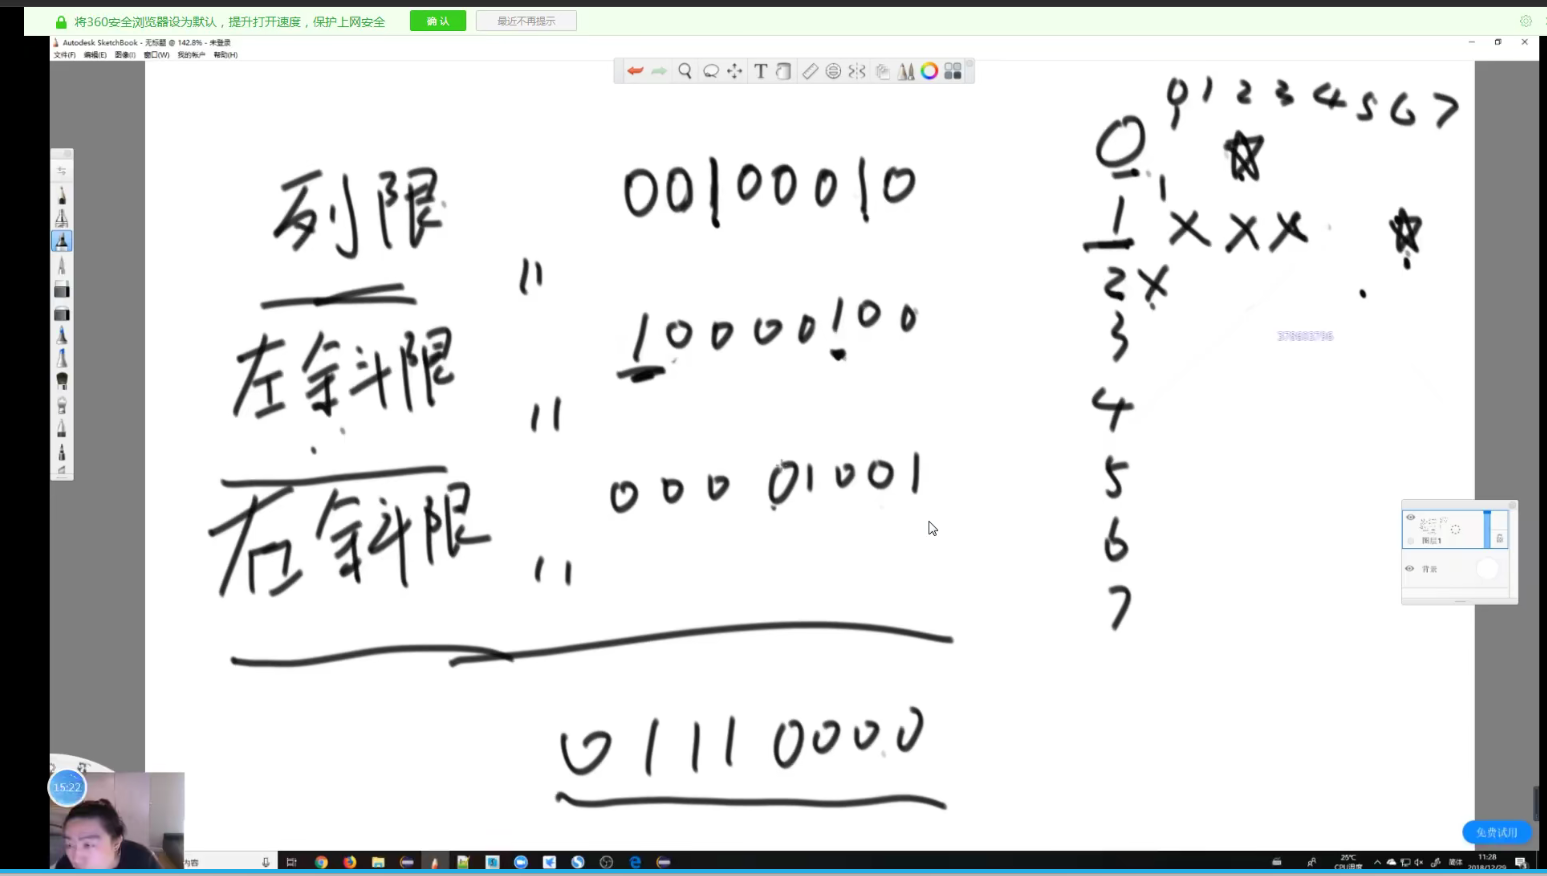 将360安全浏览器设为默认，提升打开速度，保护上网安全 确认 最近不再提示
Autodesk SketchBook - 无标题 @ 142.8% - 未登录
文件(F) 编辑(E) 图像(I) 窗口(W) 我的帐户 帮助(H)
0 1 2 3 4 5 6 7
列限 00100010
左斜限 10000100
右斜限 00001001
01110000
0
1 X X X
2 X
3
4
5
6
7
376603796
图层1
背景
15:22
免费试用
内容
25℃
CPU温度
简体
11:28
2018/12/29